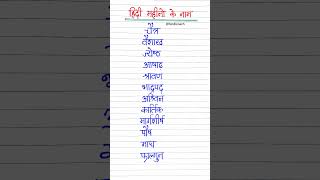 हिंदी महीनो के नाम
चैत्र
वैशाख
ज्येष्ठ
आषाढ
श्रावण
भाद्रपद
आश्विन
कार्तिक
मार्गशीर्ष
पौष
माघ
फाल्गुन